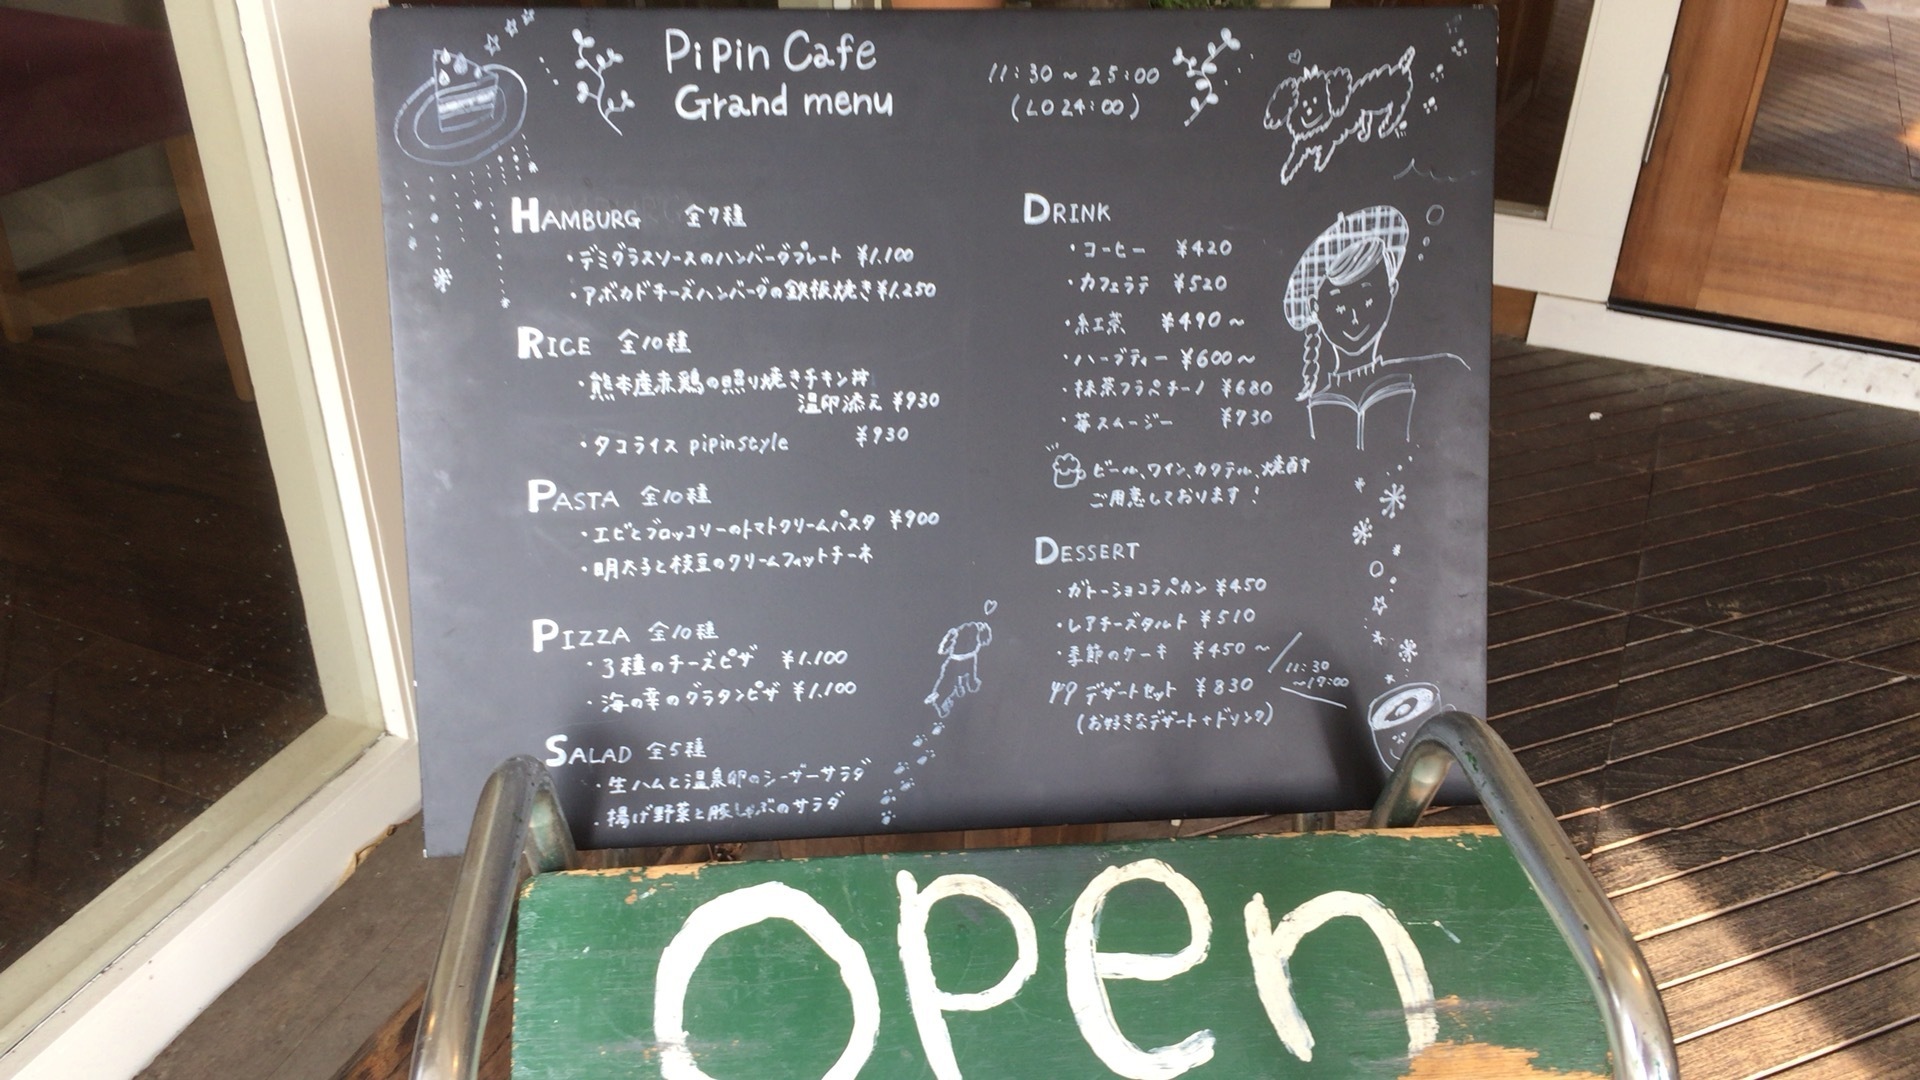 Pipin Cafe
Grand menu
11:30 ~ 25:00
(LO 24:00)
HAMBURG 全7種
・デミグラスソースのハンバーグプレート ¥1.100
・アボカドチーズハンバーグの鉄板焼き ¥1.250
RICE 全10種
・熊本産赤鶏の照り焼きチキン丼
温卵添え ¥930
・タコライス pipinstyle ¥930
PASTA 全10種
・エビとブロッコリーのトマトクリームパスタ ¥900
・明太子と枝豆のクリームフィットチーネ
PIZZA 全10種
・3種のチーズピザ ¥1.100
・海の幸のグラタンピザ ¥1.100
SALAD 全5種
・生ハムと温泉卵のシーザーサラダ
・揚げ野菜と豚しゃぶのサラダ
DRINK
・コーヒー ¥420
・カフェラテ ¥520
・紅茶 ¥490~
・ハーブティー ¥600~
・抹茶フラペチーノ ¥680
・苺スムージー ¥730
ビール、ワイン、カクテル、焼酎
ご用意しております！
DESSERT
・ガトーショコラペカン ¥450
・レアチーズタルト ¥510
・季節のケーキ ¥450~
デザートセット ¥830
(お好きなデザート+ドリンク)
11:30
~17:00
open